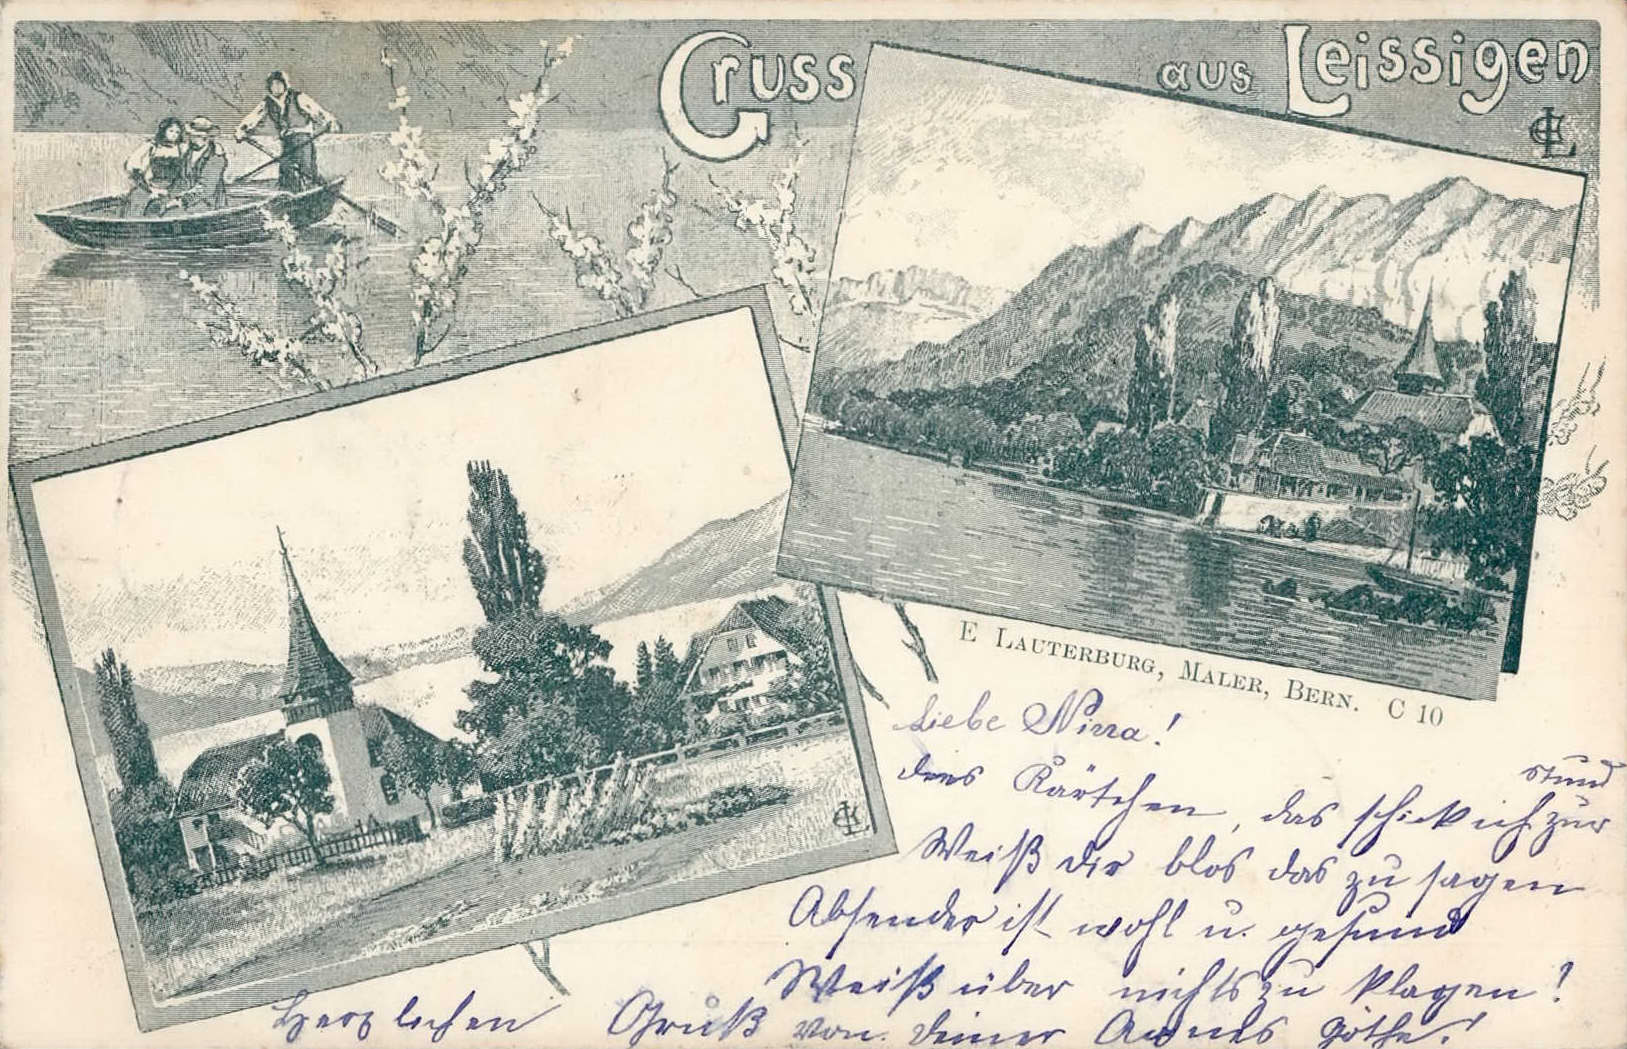 Gruss aus Leissigen
E LAUTERBURG, MALER, BERN. C 10
Liebe
dies Kärtchen, das schick ich zur
stund
Weiß dir blos das zu sagen
Absender ist wohl u. gesund
Weiß über nichts zu klagen!
Herzlichen Gruß von deiner Agnes Göthe!